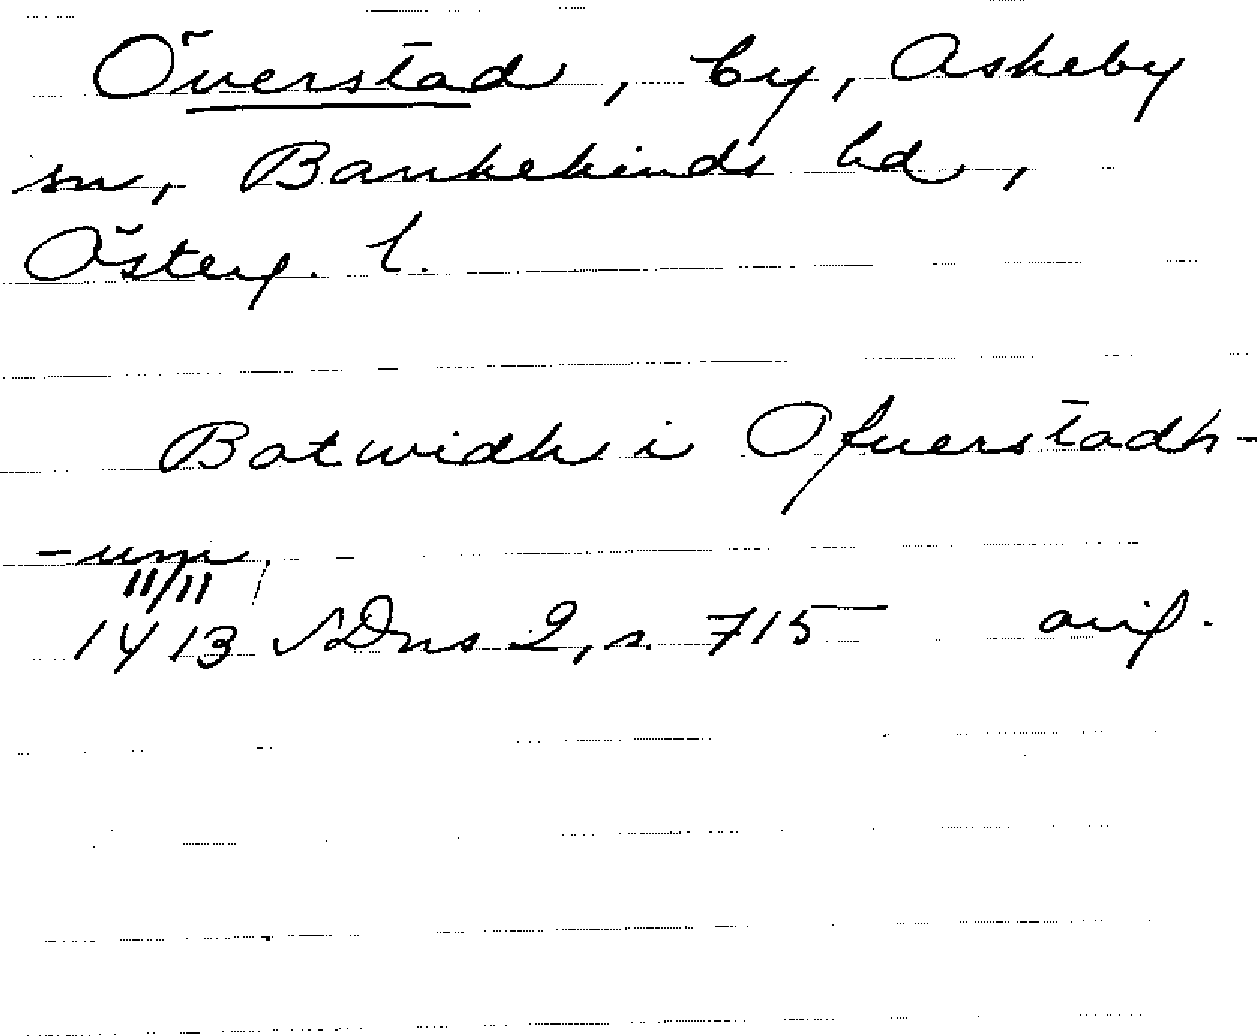 Överstad, by, Askeby
sn, Bankekinds hd,
Österg. l.
Botwidh i Ofuerstadh-
-um
11/11
1413 SDns 2, s. 715 avig.